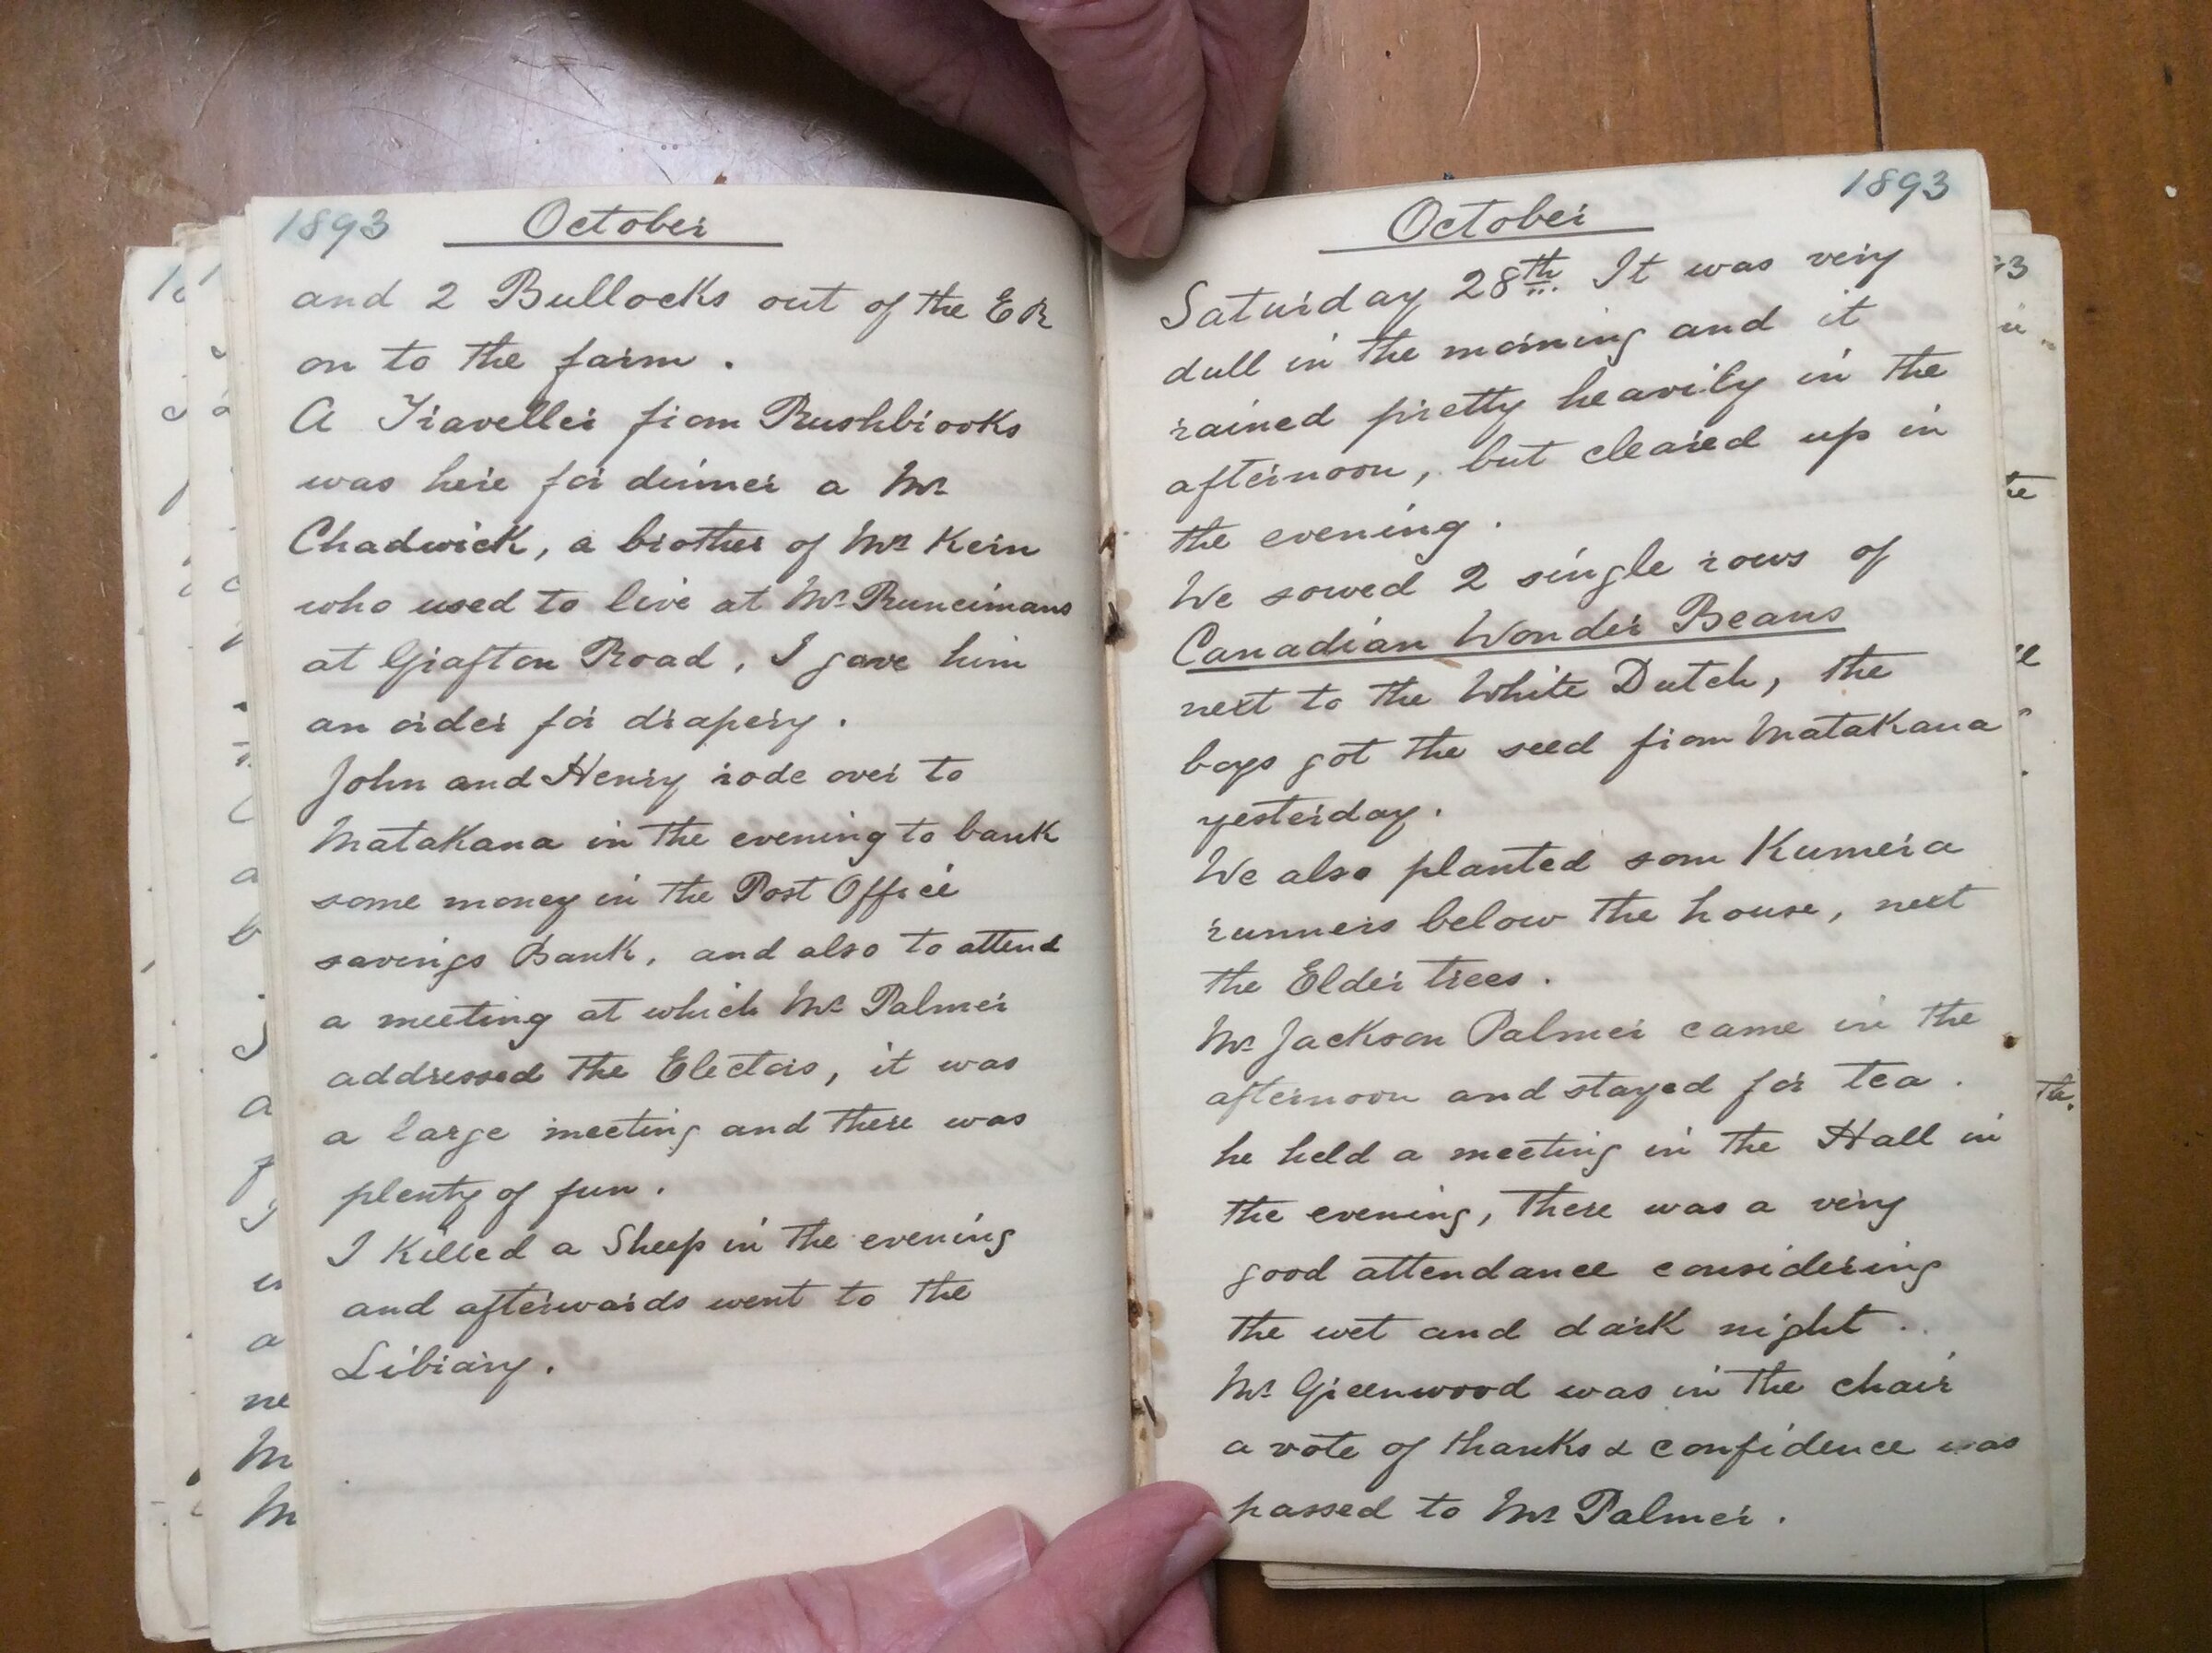 1893 October
and 2 Bullocks out of the ER
on to the farm.
A Traveller from Rushbrooks
was here for dinner a Mr
Chadwick, a brother of Mrs Kern
who used to live at Mr Runcimans
at Grafton Road, I gave him
an order for drapery.
John and Henry rode over to
Matakana in the evening to bank
some money in the Post Office
savings Bank, and also to attend
a meeting at which Mr Palmer
addressed the Electors, it was
a large meeting and there was
plenty of fun.
I Killed a Sheep in the evening
and afterwards went to the
Library.
October 1893
Saturday 28th. It was very
dull in the morning and it
rained pretty heavily in the
afternoon, but cleared up in
the evening.
We sowed 2 single rows of
Canadian Wonder Beans
next to the White Dutch, the
boys got the seed from Matakana
yesterday.
We also planted som Kumera
runners below the house, next
the Elder trees.
Mr Jackson Palmer came in the
afternoon and stayed for tea.
he held a meeting in the Hall in
the evening, there was a very
good attendance considering
the wet and dark night.
Mr Greenwood was in the chair
a vote of thanks & confidence was
passed to Mr Palmer.